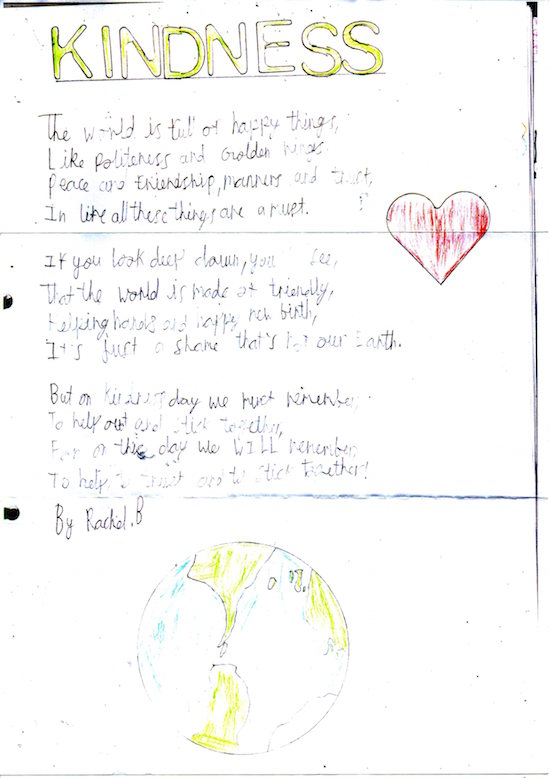 KINDNESS
The world is full of happy things,
Like Politeness and Golden rings.
Peace and Friendship, manners and trust,
In life all these things are a must.
If you look deep down, you see,
That the world is made of friendly,
Helping hands and happy new birth,
It's just a shame that's not our Earth.
But on Kindness day we must remember,
To help out and stick together,
For on this day we WILL remember,
To help, to trust and to stick together!
By Rachel.B